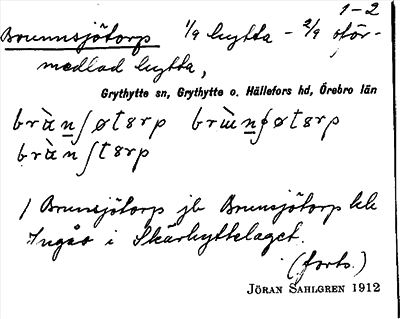 1-2
Brunnsjötorp 1/9 hytta - 2/9 oför-
medlad hytta,
Grythytte sn, Grythytte o. Hällefors hd, Örebro län
bràn̲ʃøtɛrp bràn̲ʃøtɛrp
bràn ʃtɛrp
/ Brunsjötorp jb Brunsjötorp
Ingås i Skärhyttelaget.
(forts.)
JÖRAN SAHLGREN 1912